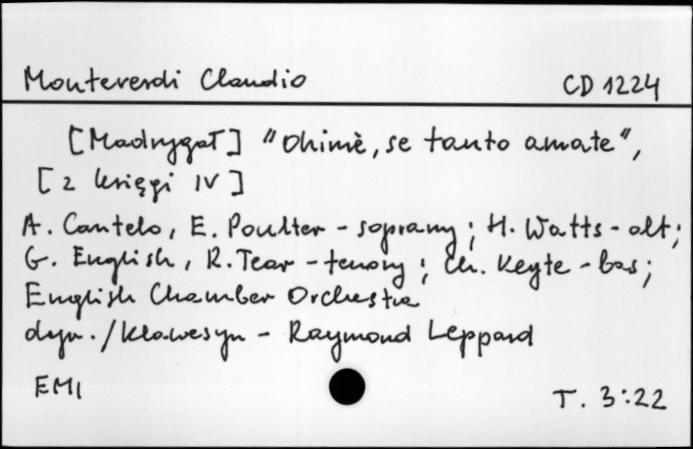 Monteverdi Claudio CD 1224
[Madrygał] "Ohimè, se tanto amate",
[z księgi IV]
A. Cantelo, E. Poulter - soprany; H. Watts - alt;
G. English, R. Tear - tenory; Ch. Keyte - bas;
English Chamber Orchestra
dyr. / klawesyn - Raymond Leppard
EMI T. 3:22